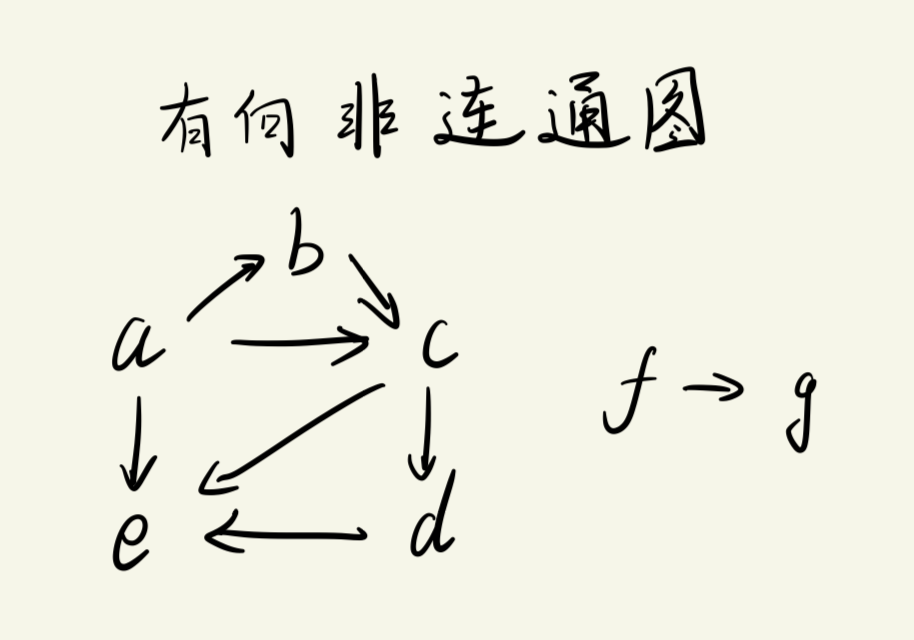 有向非连通图
b
a c
f g
e d